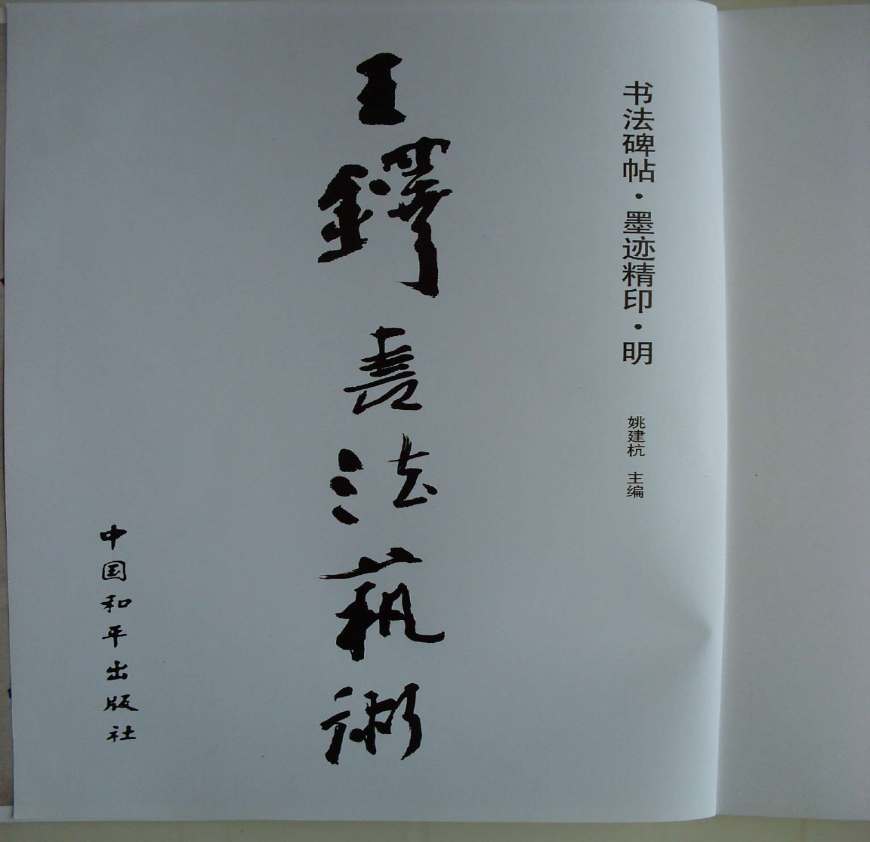 书法碑帖·墨迹精印·明
姚建杭 主编
王鐸書法藝術
中国和平出版社